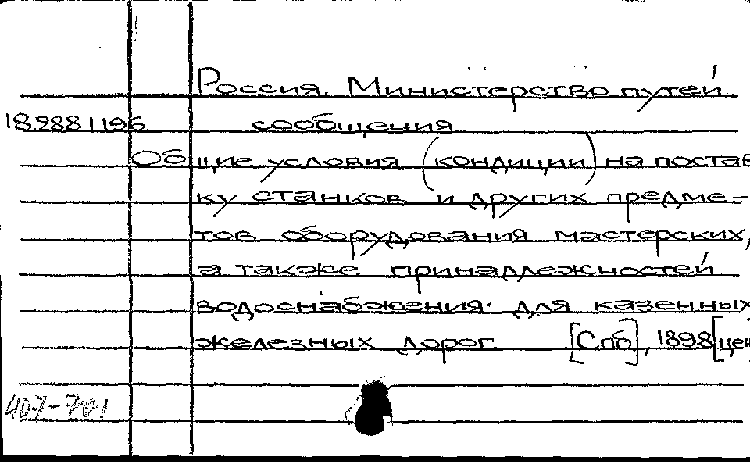 Россия. Министерство путей
18.288 1196 сообщения
Общие условия (кондиции) на постав
ку станков и других предме-
тов оборудования мастерских,
а также принадлежностей
водоснабжения для казенных
железных дорог [Спб], 1898 [цен